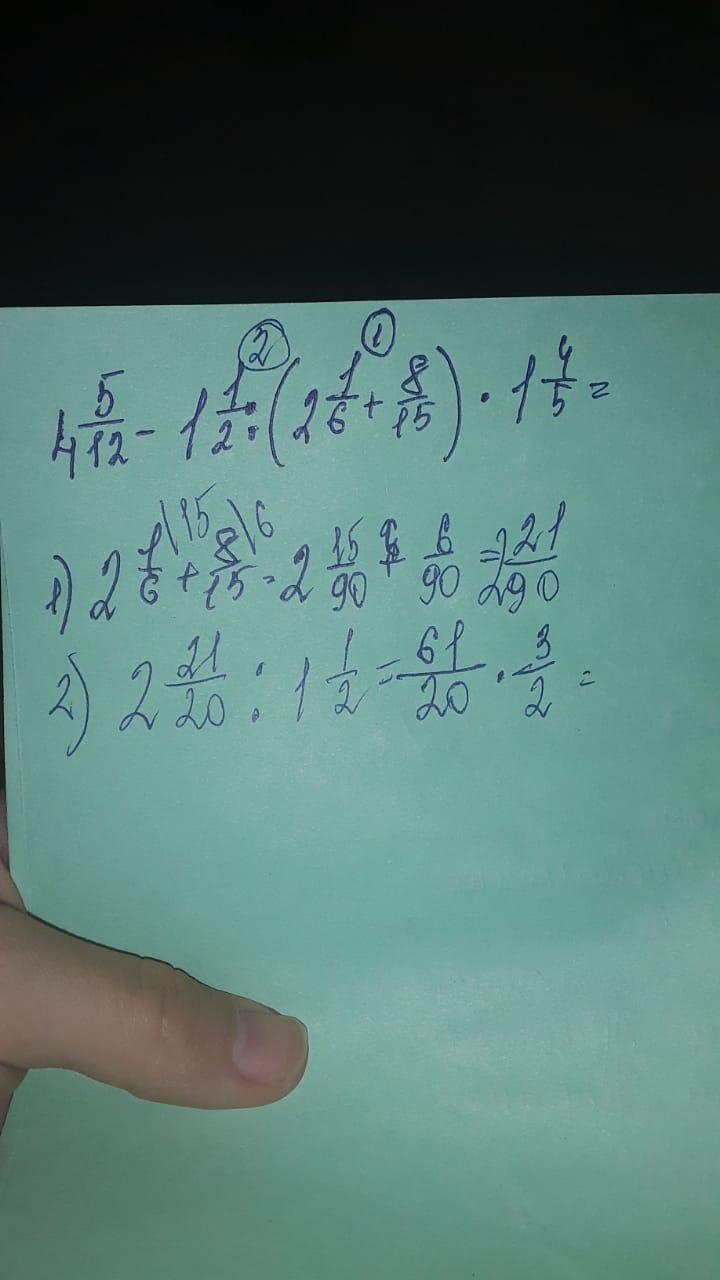 ② ①
4 5/12 - 1 1/2 : (2 1/6 + 8/15) · 1 4/5 =
1) 2 1/6 \15 + 8/15 \6 = 2 15/90 + 6/90 = 2 21/90
2) 2 21/20 : 1 1/2 = 61/20 · 3/2 =